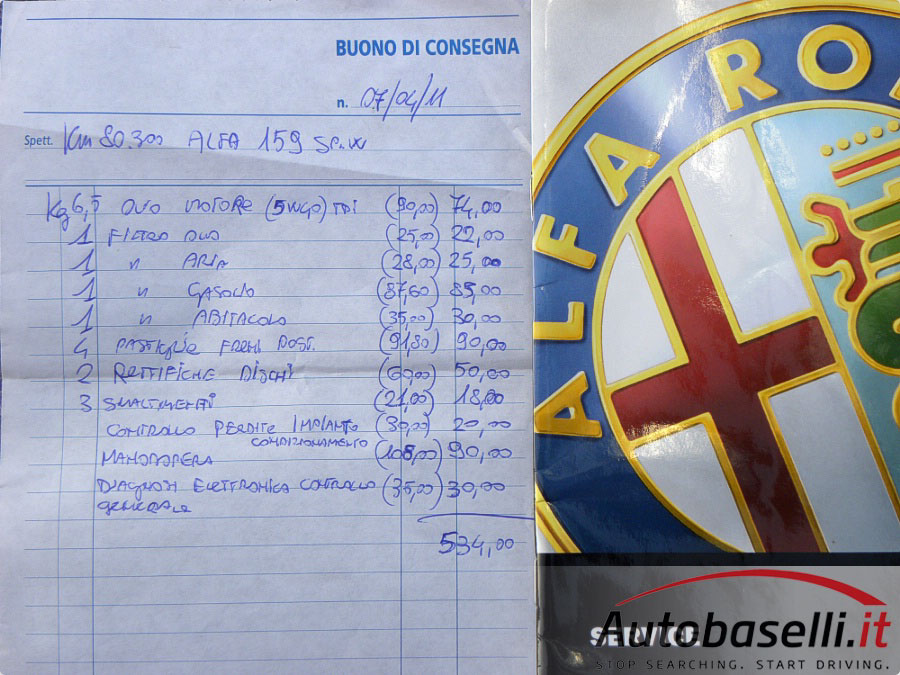 BUONO DI CONSEGNA
n. 07/04/11
Spett. Km 80.300 ALFA 159 SP.W
Kg 6,5 OLIO MOTORE (5W40) TDI (90,00) 74,00
1 FILTRO OLIO (25,00) 22,00
1 " ARIA (28,00) 25,00
1 " GASOLIO (87,60) 85,00
1 " ABITACOLO (35,00) 30,00
4 PASTIGLIE FRENI POST. (91,80) 90,00
2 RETTIFICHE DISCHI (60,00) 50,00
3 SMALTIMENTI (21,00) 18,00
CONTROLLO PERDITE IMPIANTO (30,00) 20,00
CONDIZIONAMENTO
MANODOPERA (108,00) 90,00
DIAGNOSI ELETTRONICA CONTROLLO (35,00) 30,00
GENERALE
534,00
ALFA RO
SERVICE
Autobaselli.it
STOP SEARCHING. START DRIVING.